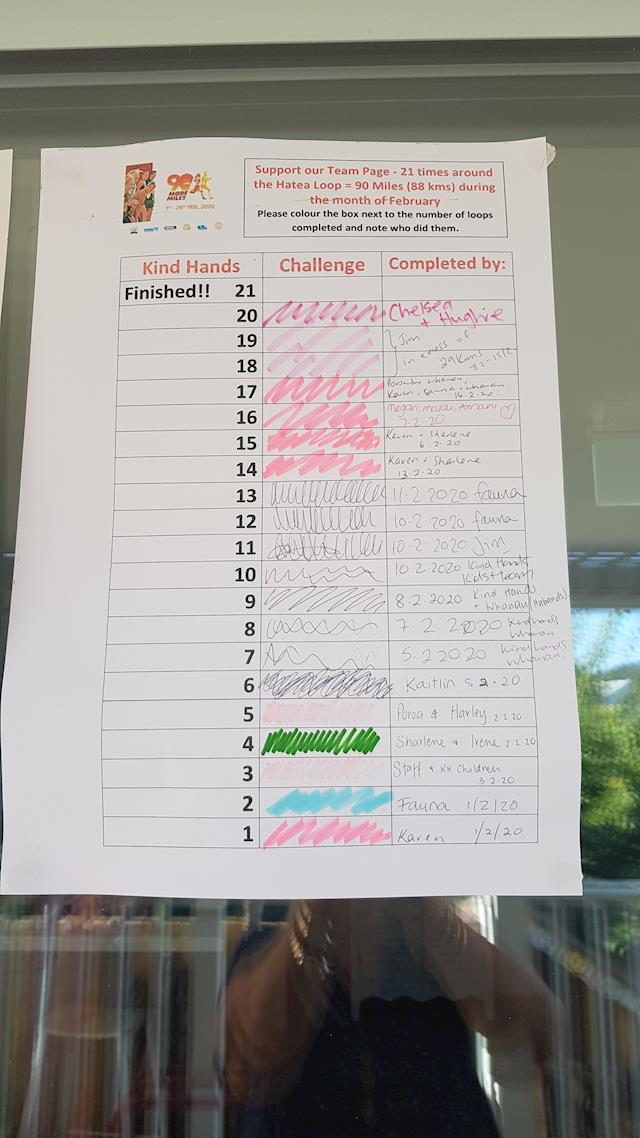 90
MORE
MILES
1ST - 29TH FEB, 2020
Support our Team Page - 21 times around
the Hatea Loop = 90 Miles (88 kms) during
the month of February
Please colour the box next to the number of loops
completed and note who did them.
Kind Hands Challenge Completed by:
Finished!! 21
20 Chelsea
+ Hughie
19 Jim
in excess of
18 29kms
17 whanau,
Karen, Fauna + whanau.
16.2.20.
16 Megan, Makai, Amarni ♡
7.2.20
15 Karen + Sharlene
6.2.20
14 Karen + Sharlene
13.2.20.
13 11.2.2020 fauna
12 10.2.2020 fauna
11 10.2.2020 Jim
10 10.2.2020 Kind Hands
team
9 8.2.2020 Kind Hands
+ Whanau (Husbands)
8 7.2.2020 Kindhands
Whanau
7 5.2.2020 Kindhands
Whanau.
6 Kaitlin 5 2.20
5 Poroa & Harley 2 2 20
4 Sharlene + Irene 2 2 20
3 Staff + KH Children
3.2.20
2 Fauna 1/2/20
1 Karen 1/2/20